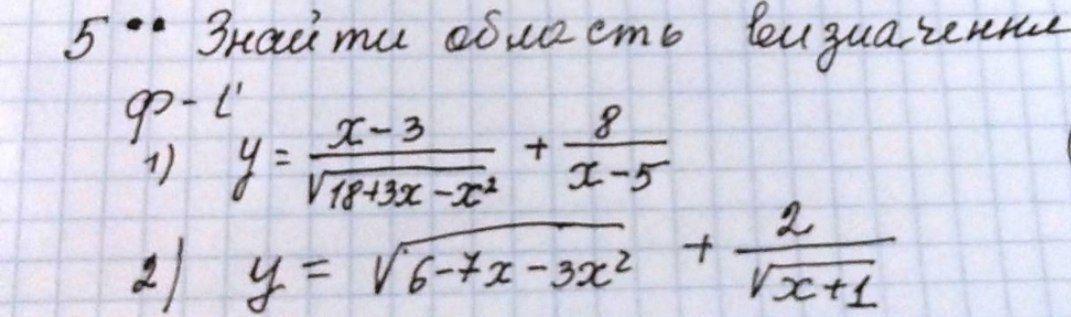 5** Знайти область визначення
ф-ї
1) y = \frac{x-3}{\sqrt{18+3x-x^2}} + \frac{8}{x-5}
2) y = \sqrt{6-7x-3x^2} + \frac{2}{\sqrt{x+1}}